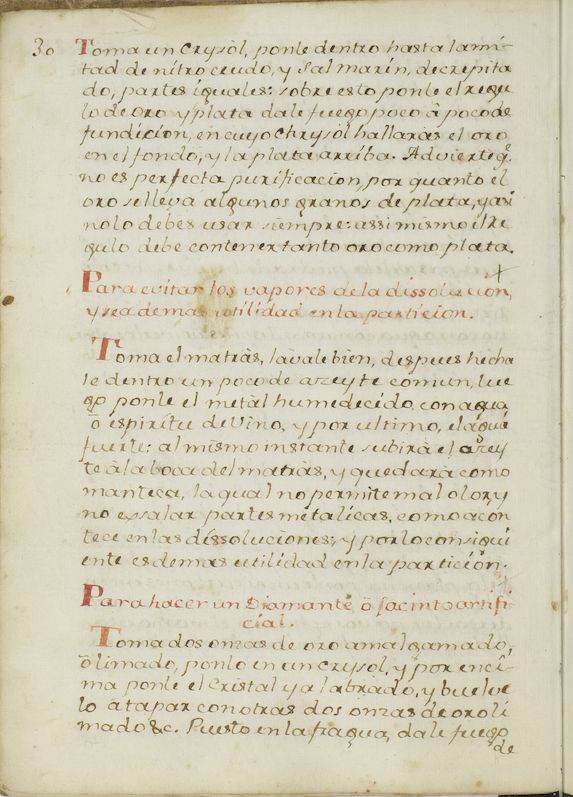 30
Toma un Crysòl, ponle dentro hasta la mi-
tad de nitro crudo, y Sal marin, decrepita
do, partes iguales: sobre esto ponle el regu
lo de oro y plata dale fuego poco â poco de
fundicion, en cuyo Chrysol hallaràs el oro
en el fondo, y la plata arriba. Advierte q.
no es perfecta purificacion, por quanto el
oro se lleva algunos granos de plata, y asi
no lo debes usar siempre: assi mismo el Re
gulo debe contener tanto oro como plata.
Para evitar los vapores de la dissolucion,
y sea de mas utilidad en la particion.
Toma el matràs, lavale bien, despues hecha
le dentro un poco de azeyte comun, lue
go ponle el metal humedecido con agua
ô espiritu de Vino, y por ultimo, el agua
fuerte: al mismo instante subirà el azey
te à la boca del matràs, y quedarà como
manteca, la qual no permite mal olor, y
no exsalar partes metalicas, como acon
tece en las dissoluciones; y por lo consigui
ente es de mas utilidad en la particiòn.
Para hacer un Diamante, ô Jacinto artifi
cial.
Toma dos onzas de oro amalgamado,
ô limado, ponlo en un Crysol, y por enci-
ma ponle el Cristal ya labrado, y buelve
lo â tapar con otras dos onzas de oro li
mado &c. Puesto en la fragua, dale fuego
de